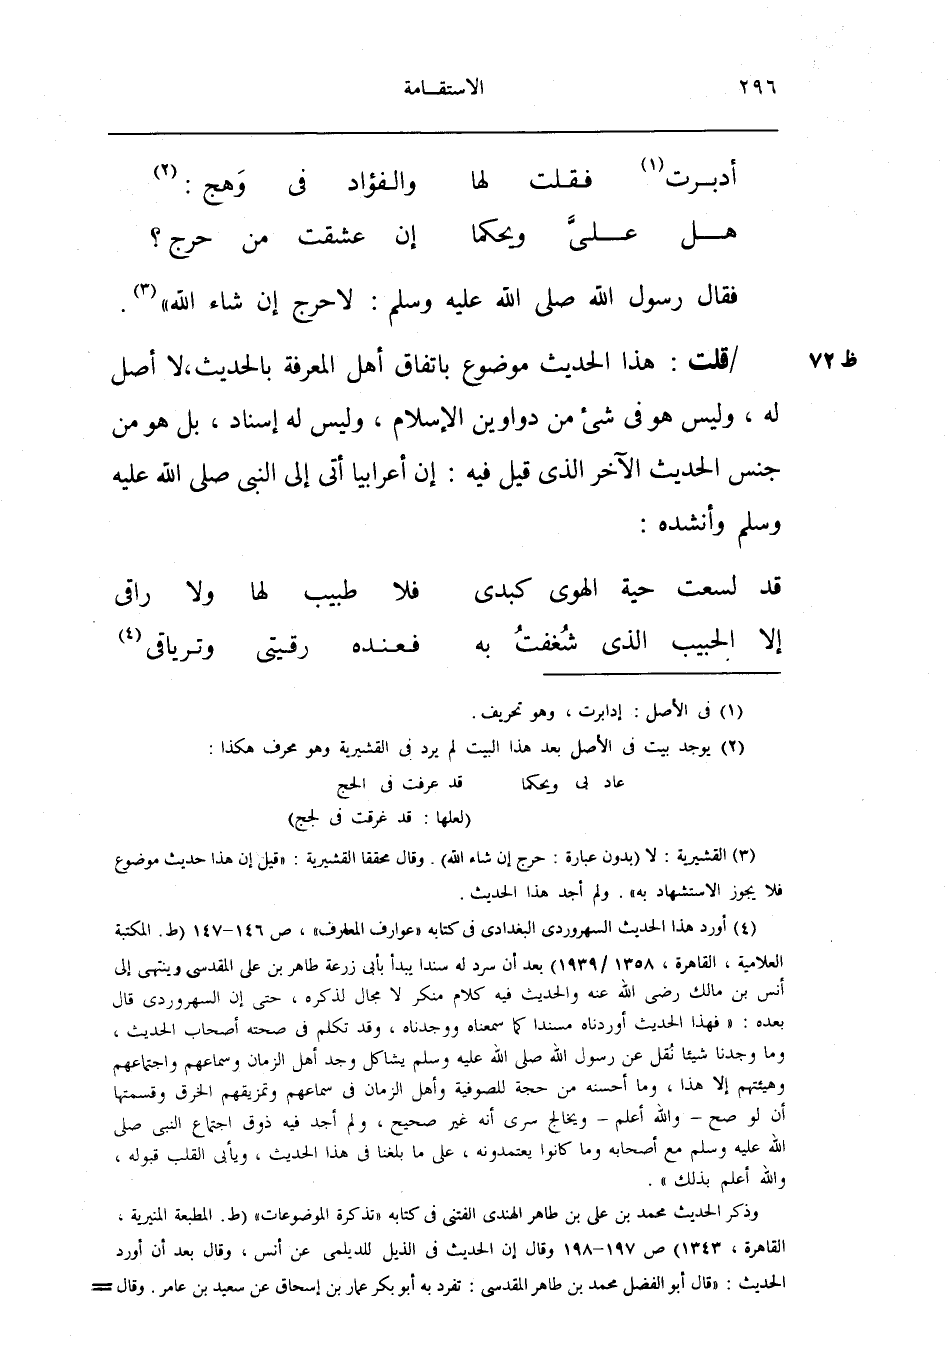 ٢٩٦ الاستقـامة
أدبــرت(١) فـقـلت لها والـفؤاد فى وَهج :(٢)
هـــل عـــلىَّ ويحكما إن عشقت من حرج ؟
فقال رسول الله صلى الله عليه وسلم : لاحرج إن شاء الله»(٣) .
ظ ٧٢ /قلت : هذا الحديث موضوع باتفاق أهل المعرفة بالحديث،لا أصل
له ، وليس هو فى شئ من دواوين الإسلام ، وليس له إسناد ، بل هو من
جنس الحديث الآخر الذى قيل فيه : إن أعرابيا أتى إلى النبى صلى الله عليه
وسلم وأنشده :
قد لسعت حية الهوى كبدى فلا طبيب لها ولا راقى
إلا الحبيب الذى شُغفتُ به فـعنـده رقـيتى وتـرياقى(٤)
(١) فى الأصل : إدابرت ، وهو تحريف .
(٢) يوجد بيت فى الأصل بعد هذا البيت لم يرد فى القشيرية وهو محرف هكذا :
عاد لى ويحكما قد عرفت فى الحج
(لعلها : قد غرقت فى لجج)
(٣) القشيرية : لا (بدون عبارة : حرج إن شاء الله) . وقال محققا القشيرية : «قيل إن هذا حديث موضوع
فلا يجوز الاستشهاد به» . ولم أجد هذا الحديث .
(٤) أورد هذا الحديث السهروردى البغدادى فى كتابه «عوارف المعارف» ، ص ١٤٦-١٤٧ (ط. المكتبة
العلامية ، القاهرة ، ١٣٥٨ /١٩٣٩) بعد أن سرد له سندا يبدأ بأبى زرعة طاهر بن على المقدسى وينتهى إلى
أنس بن مالك رضى الله عنه والحديث فيه كلام منكر لا مجال لذكره ، حتى إن السهروردى قال
بعده : « فهذا الحديث أوردناه مسندا كما سمعناه ووجدناه ، وقد تكلم فى صحته أصحاب الحديث ،
وما وجدنا شيئا نُقل عن رسول الله صلى الله عليه وسلم يشاكل وجد أهل الزمان وسماعهم واجتماعهم
وهيئتهم إلا هذا ، وما أحسنه من حجة للصوفية وأهل الزمان فى سماعهم وتمزيقهم الخرق وقسمتها
أن لو صح – والله أعلم – ويخالج سرى أنه غير صحيح ، ولم أجد فيه ذوق اجتماع النبى صلى
الله عليه وسلم مع أصحابه وما كانوا يعتمدونه ، على ما بلغنا فى هذا الحديث ، ويأبى القلب قبوله ،
والله أعلم بذلك » .
وذكر الحديث محمد بن على بن طاهر الهندى الفتنى فى كتابه «تذكرة الموضوعات» (ط. المطبعة المنيرية ،
القاهرة ، ١٣٤٣) ص ١٩٧-١٩٨ وقال إن الحديث فى الذيل للديلمى عن أنس ، وقال بعد أن أورد
الحديث : «قال أبو الفضل محمد بن طاهر المقدسى : تفرد به أبو بكر عمار بن إسحاق عن سعيد بن عامر . وقال =